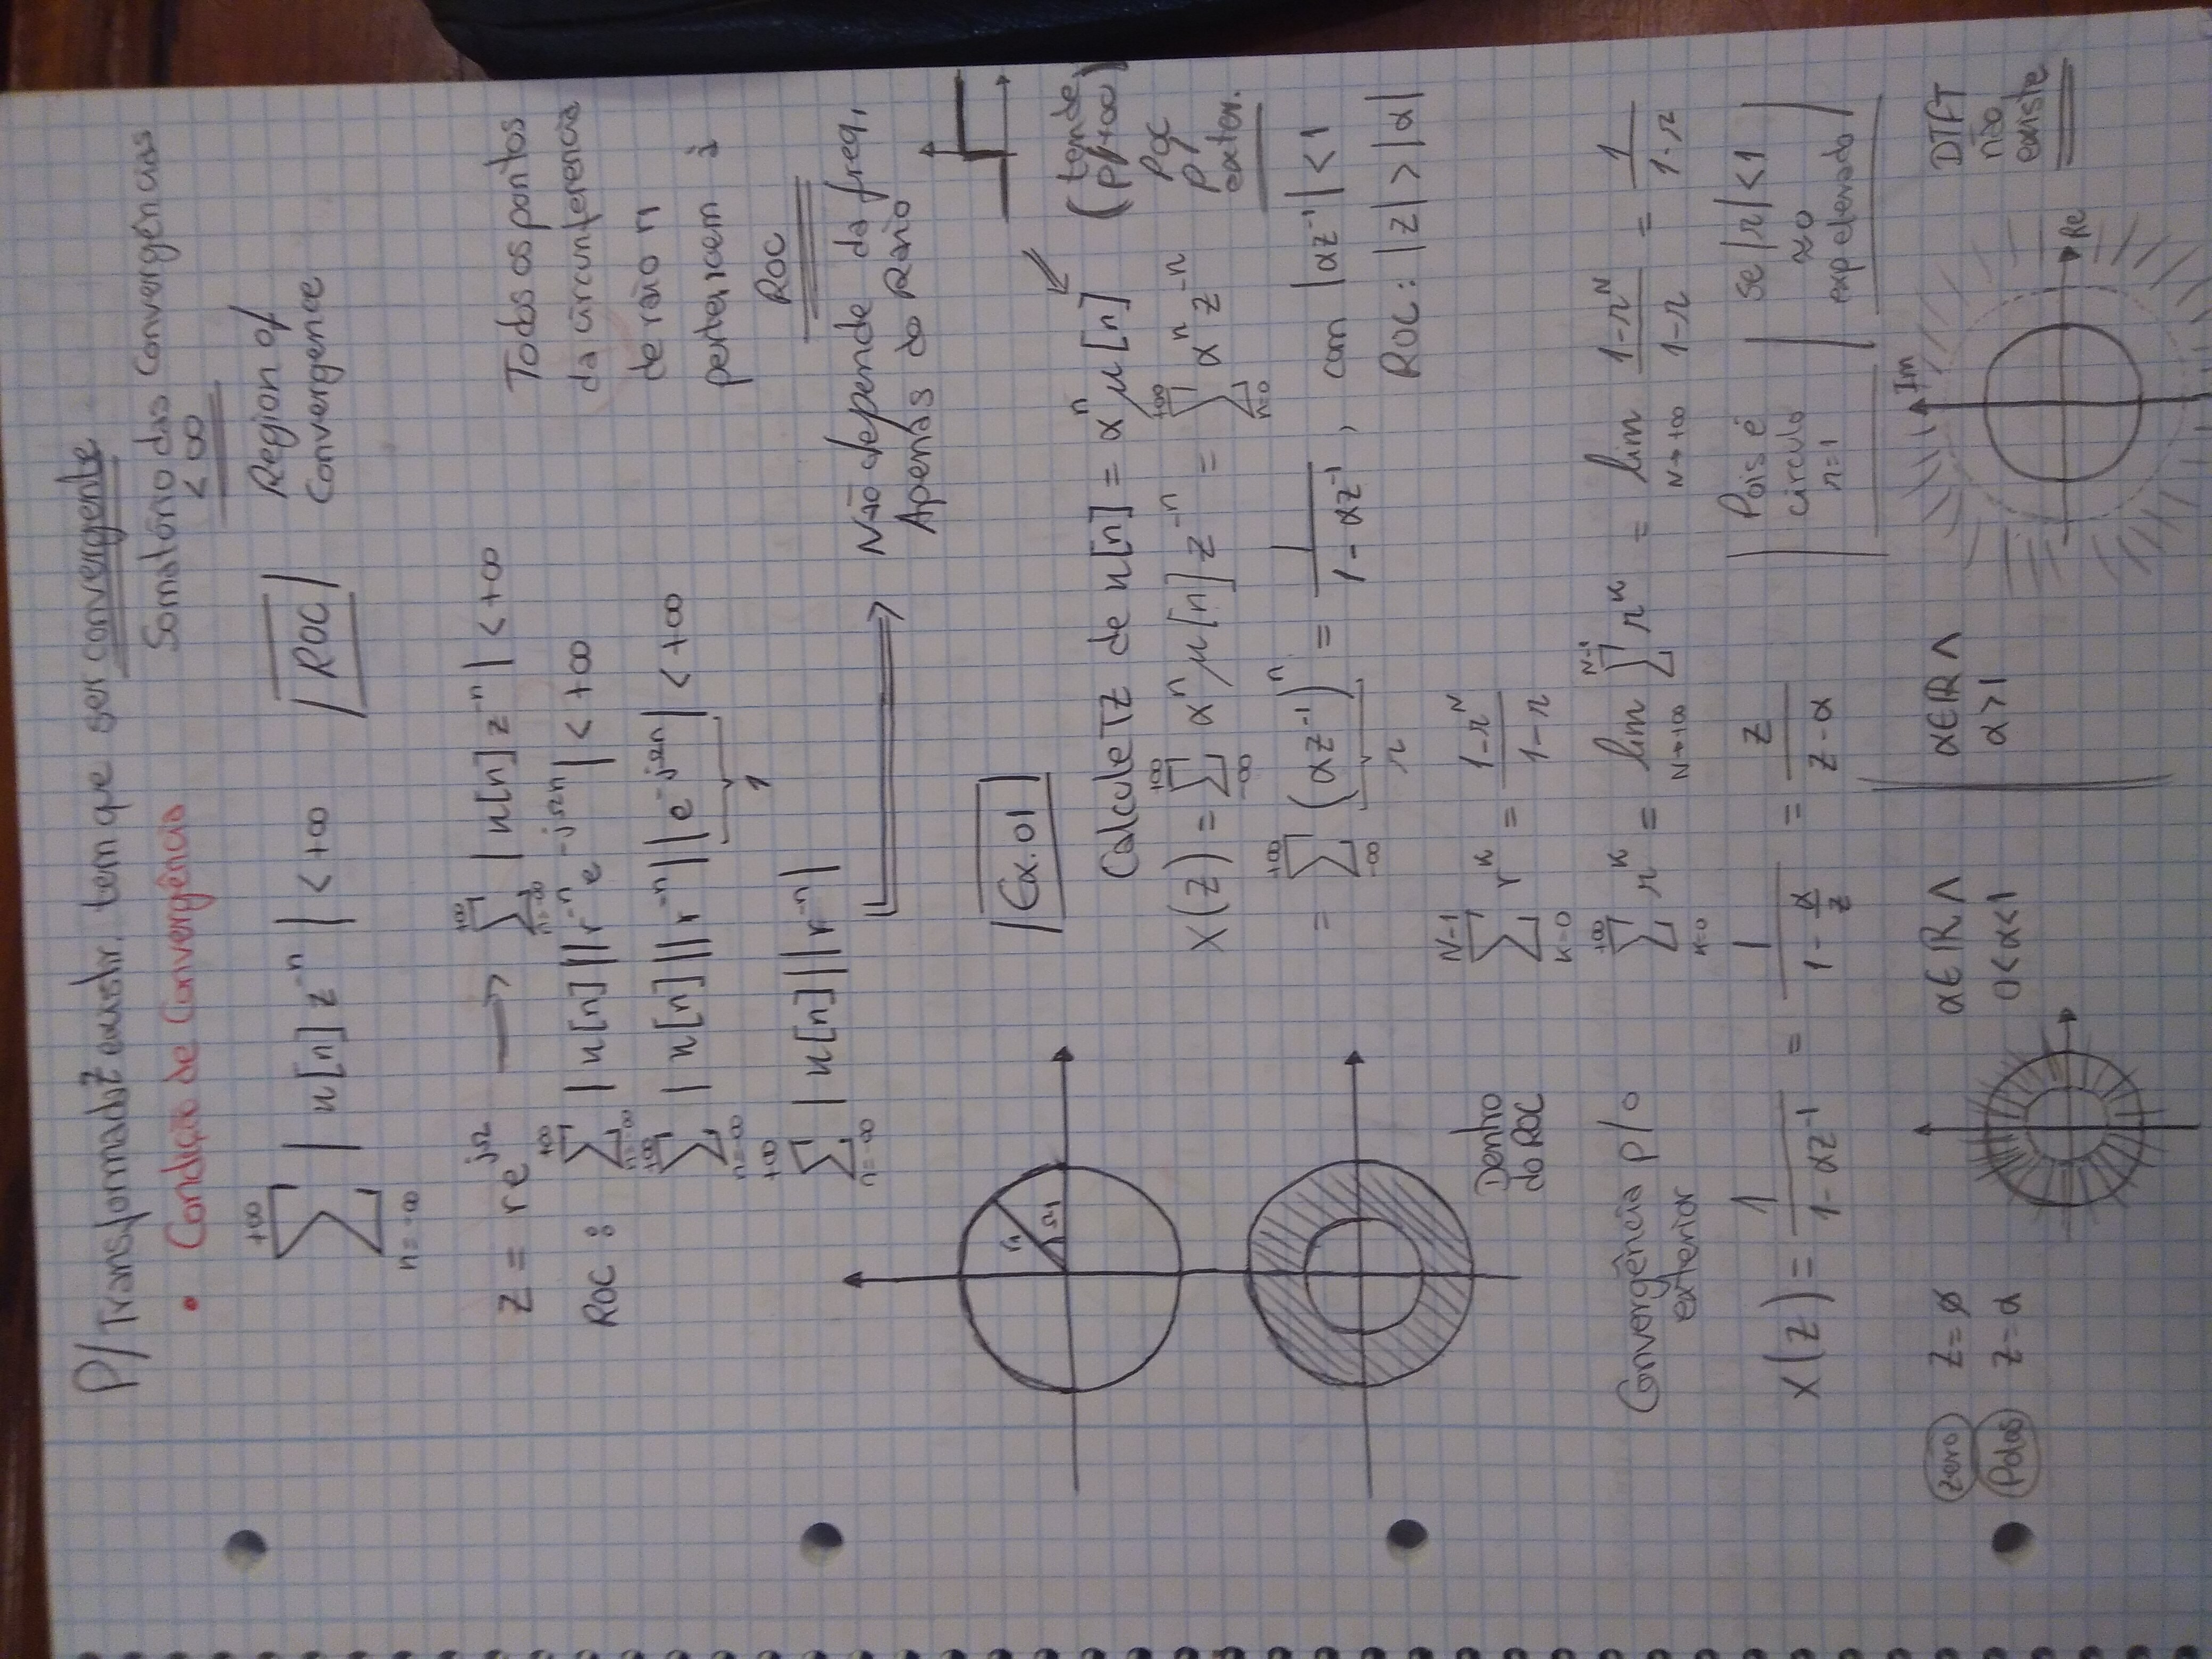 P/ Transformada Z existir. tem que ser convergente
• Condição de Convergência
Somatório das Convergências
< ∞
+∞
∑ | x[n] z^-n | < +∞
n=-∞
|ROC|
Region of
Convergence
z = re^jΩ → ∑ | x[n] z^-n | < +∞
ROC : ∑ | x[n] || r^-n e^-jΩn | < +∞
∑ | x[n] || r^-n || e^-jΩn | < +∞
1
∑ | x[n] || r^-n |
Todos os pontos
da circunferencia
de raio r1
pertencem à
ROC
Não depende da freq,
Apenas do Raio
r1
Ω1
|Ex.01|
Calcule TZ de x[n] = α^n μ[n]
(tende
p/+∞)
ROC
p/
exter.
X(z) = ∑ α^n μ[n] z^-n = ∑ α^n z^-n
= ∑ (αz^-1)^n = 1/(1-αz^-1) , com |αz^-1| < 1
r
ROC: |z| > |α|
Dentro
do ROC
N-1
∑ r^k = (1-r^N)/(1-r)
k=0
Convergência p/ o
exterior
+∞
∑ r^k = lim N→+∞ ∑ r^k = lim N→+∞ (1-r^N)/(1-r) = 1/(1-r)
k=0
X(z) = 1/(1-αz^-1) = 1/(1-α/z) = z/(z-α)
Pois é
circulo
r=1
se |r| < 1
≈0
exp elevado
zero z=ø
Polos z=α
α∈ℝ ∧
0<α<1
α∈ℝ ∧
α>1
Im
Re
DTFT
não
existe